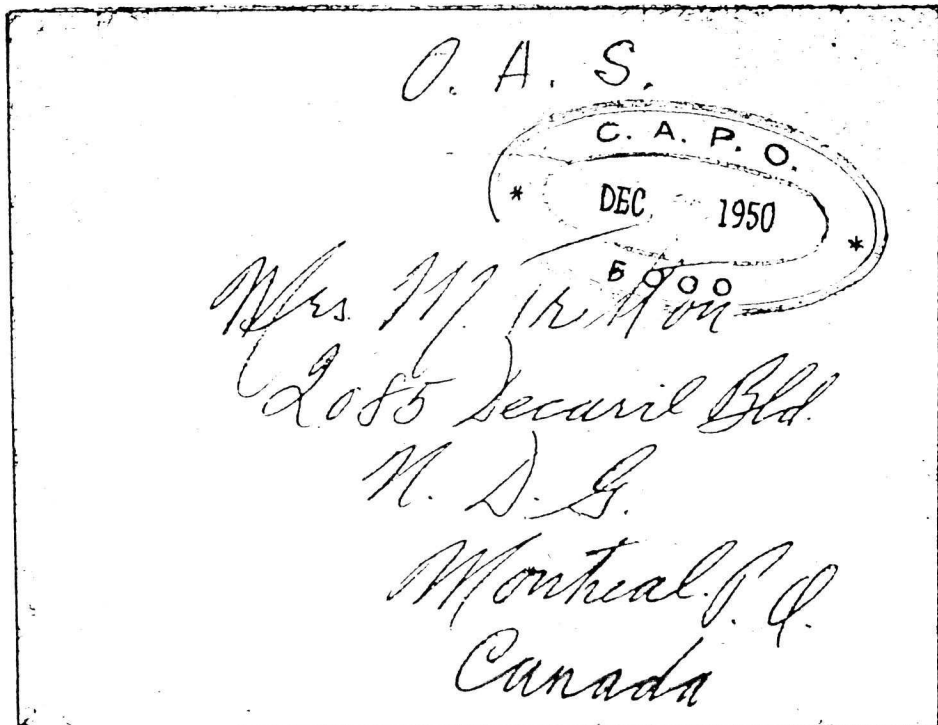 O. A. S.
C. A. P. O.
* DEC 1950 *
5000
Mrs. M. Tritton
2085 Decaril Bld.
N. D. G.
Montreal. P. Q.
Canada